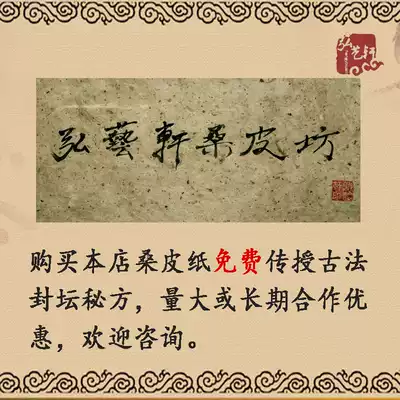 弘艺轩
弘藝軒桑皮坊
购买本店桑皮纸免费传授古法
封坛秘方，量大或长期合作优
惠，欢迎咨询。